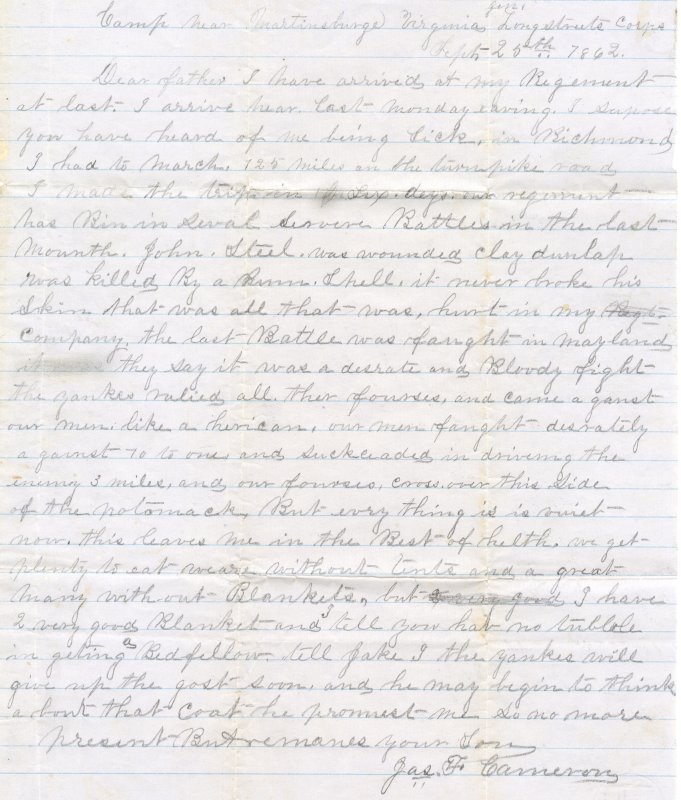 Camp near Martinsburge Virginia Gen. Longstreets Corps
Sept 25th 1862.
Dear father I have arrived at my Regement
at last. I arrive hear last monday eaving. I supose
you have heard of me being Sick, in Richmond
I had to march. 125 miles on the turnpike road
I made the trip in six days. our regement
has Bin in several Servere Battles in the last
mounth. John. Steel. was wounded clay dunlap
was killed By a Bum. Shell. it never broke his
Skin that was all that was, hurt in my Regt
company, the last Battle was faught in mayland
it was they say it was a desrate and Bloody fight
the yankes ralied all. ther fourses, and came a ganst
our men. like a herican, our men faught desrately
a gainst 10 to one, and suckceaded in driveing the
enemy 3 miles, and our fourses, cross, over this Side
of the potomack, But evry thing is is quiet
now. this leaves me in the Best of helth. we get
plenty to eat weare without tents and a great
many with out Blankets, but a very good I have
2 very good Blanket and I tell you hav no trubble
in geting a Bedfellow. tell Jake I the yankes will
give up the gost soon, and he may begin to think
a bout that coat he promest me so no more
present But remanes your Son
Jas. F. Cameron